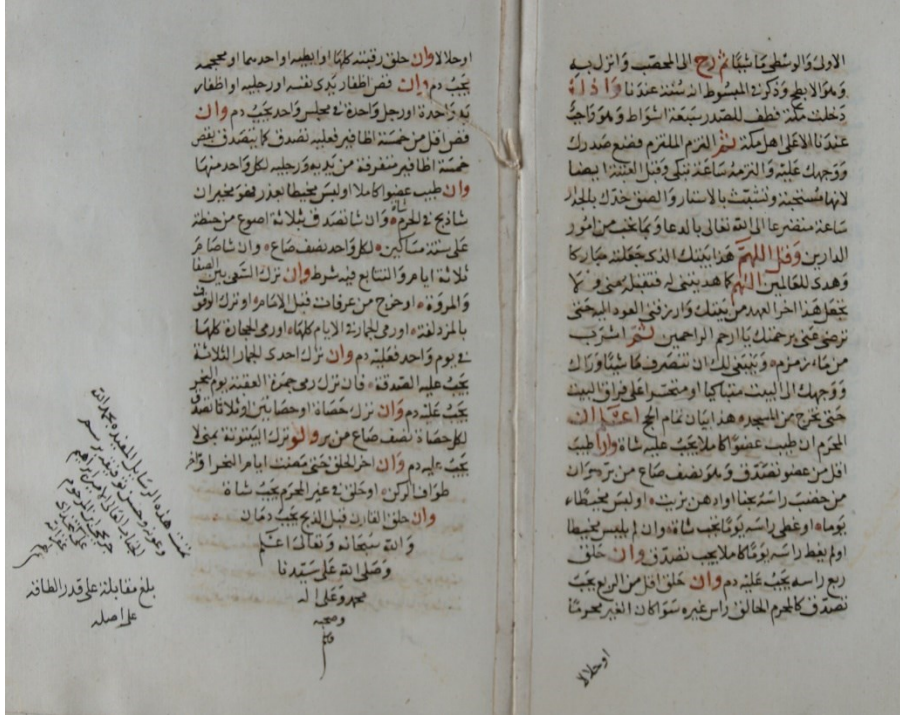 الاولى والوسطى ماشيا ثم رح الى المحصب وانزل به
وهو الابطح وذكر في المبسوط انه سنة عندنا واذا
دخلت مكة فطف للصدر سبعة اشواط وهو واجب
عندنا الا على اهل مكة ثم الزم الملتزم فضع صدرك
ووجهك عليه والتزمه ساعة تبكي وقبل العتبة ايضا
لانها مستحبة وتشبث بالاستار والصق خدك بالجدار
ساعة متضرعا الى الله تعالى بالدعا وبما تحب من امور
الدارين وقل اللهم هذا بيتك الذي جعلته مباركا
وهدى للعالمين اللهم كما هديتني له فتقبل مني ولا
تجعل هذا اخر العهد من بيتك وارزقني العود اليه حتى
ترضى عني برحمتك يا ارحم الراحمين ثم اشرب
من ماء زمزم وينبغي لك ان تنصرف ماشيا وراك
ووجهك الى البيت متباكيا او متحسرا على فراق البيت
حتى تخرج من المسجد هذا بيان تمام الحج اعلم ان
المحرم ان طيب عضوا كاملا يجب عليه شاة وان طيب
اقل من عضو تصدق وهو نصف صاع من بر وان
من خضب راسه بحنا او ادهن بزيت او لبس مخيطا
يوما او غطى راسه يوما يجب شاة وان لم يلبس مخيطا
او لم يغط راسه يوما كاملا يجب تصدق وان حلق
ربع راسه يجب عليه دم وان حلق اقل من الربع يجب
تصدق كالمحرم الحالق راس غيره سوا كان الغير محرما
او حلالا
او حلالا وان حلق رقبته كلها او ابطيه او احدهما او محجمه
يجب دم وان قص اظفار يدي نفسه او رجليه او اظفار
يد واحدة او رجل واحدة في مجلس واحد يجب دم وان
قص اقل من خمسة اظافير فعليه تصدق كما يتصدق بقص
خمسة اظافير متفرقة من يديه ورجليه لكل واحد منها
وان طيب عضوا كاملا او لبس مخيطا بعذر فهو مخير ان
شا ذبح في الحرم شاة وان شا تصدق بثلاثة اصوع من حنطة
على ستة مساكين لكل واحد نصف صاع وان شا صام
ثلاثة ايام والتتابع فيه شرط وان ترك السعي بين الصفا
والمروة او خرج من عرفات قبل الامام او ترك الوقوف
بالمزدلفة او رمي الجمار في الايام كلها او رمي الحجارة كلها
في يوم واحد فعليه دم وان ترك احدى الجمار الثلاثة
يجب عليه الصدقة فان ترك رمي جمرة العقبة يوم النحر
يجب عليه دم وان ترك حصاة او حصاتين او ثلاثا تصدق
لكل حصاة نصف صاع من بر ولو ترك البيتوتة بمنى لا
يجب عليه دم وان اخر الحلق حتى مضت ايام النحر او اخر
طواف الركن او حلق في غير الحرم يجب شاة
وان حلق القارن قبل الذبح يجب دمان
والله سبحانه وتعالى اعلم
وصلى الله على سيدنا
محمد وعلى اله
وصحبه
وسلم
تمت هذه الرسايل المفيدة بحمد الله
وعونه وحسن توفيقه
بلغ مقابلة على قدر الطاقة
على اصله